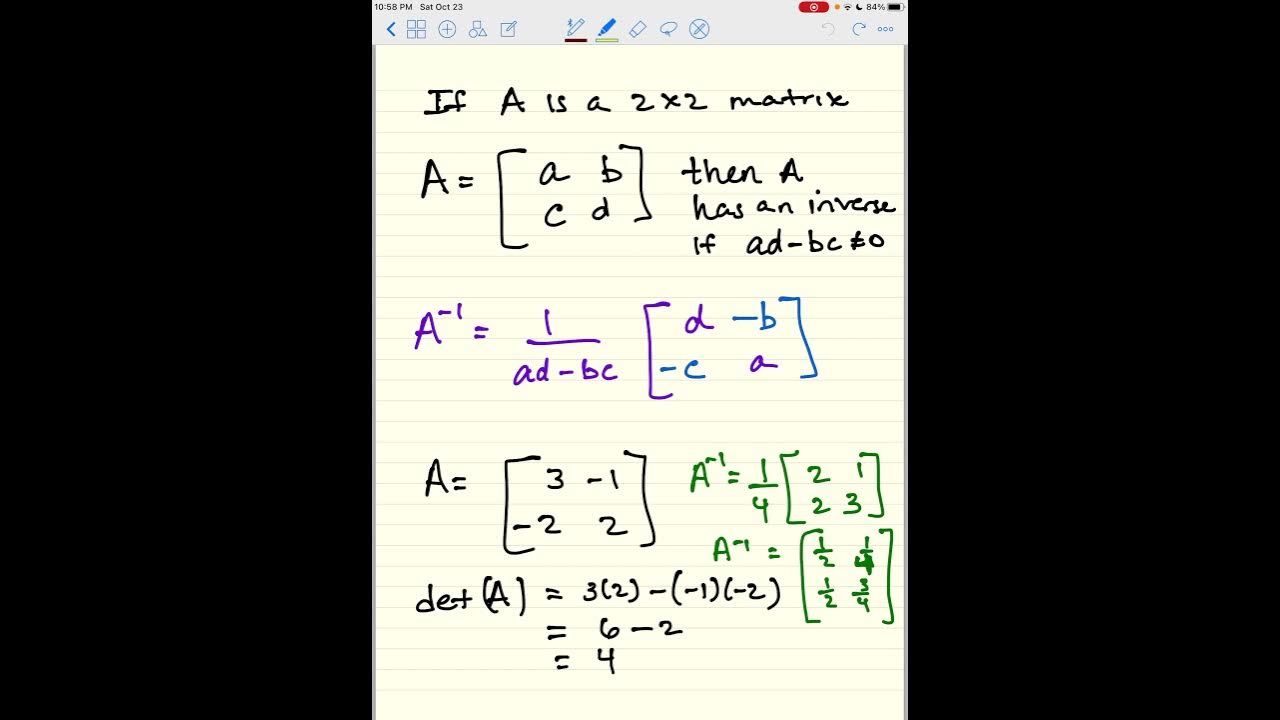 10:58 PM Sat Oct 23
84%
If A is a 2×2 matrix
A = [ a b
c d ]
then A
has an inverse
if ad-bc≠0
A⁻¹ = 1/(ad-bc) [ d -b
-c a ]
A = [ 3 -1
-2 2 ]
A⁻¹ = 1/4 [ 2 1
2 3 ]
A⁻¹ = [ 1/2 1/4
1/2 3/4 ]
det(A) = 3(2) -(-1)(-2)
= 6-2
= 4